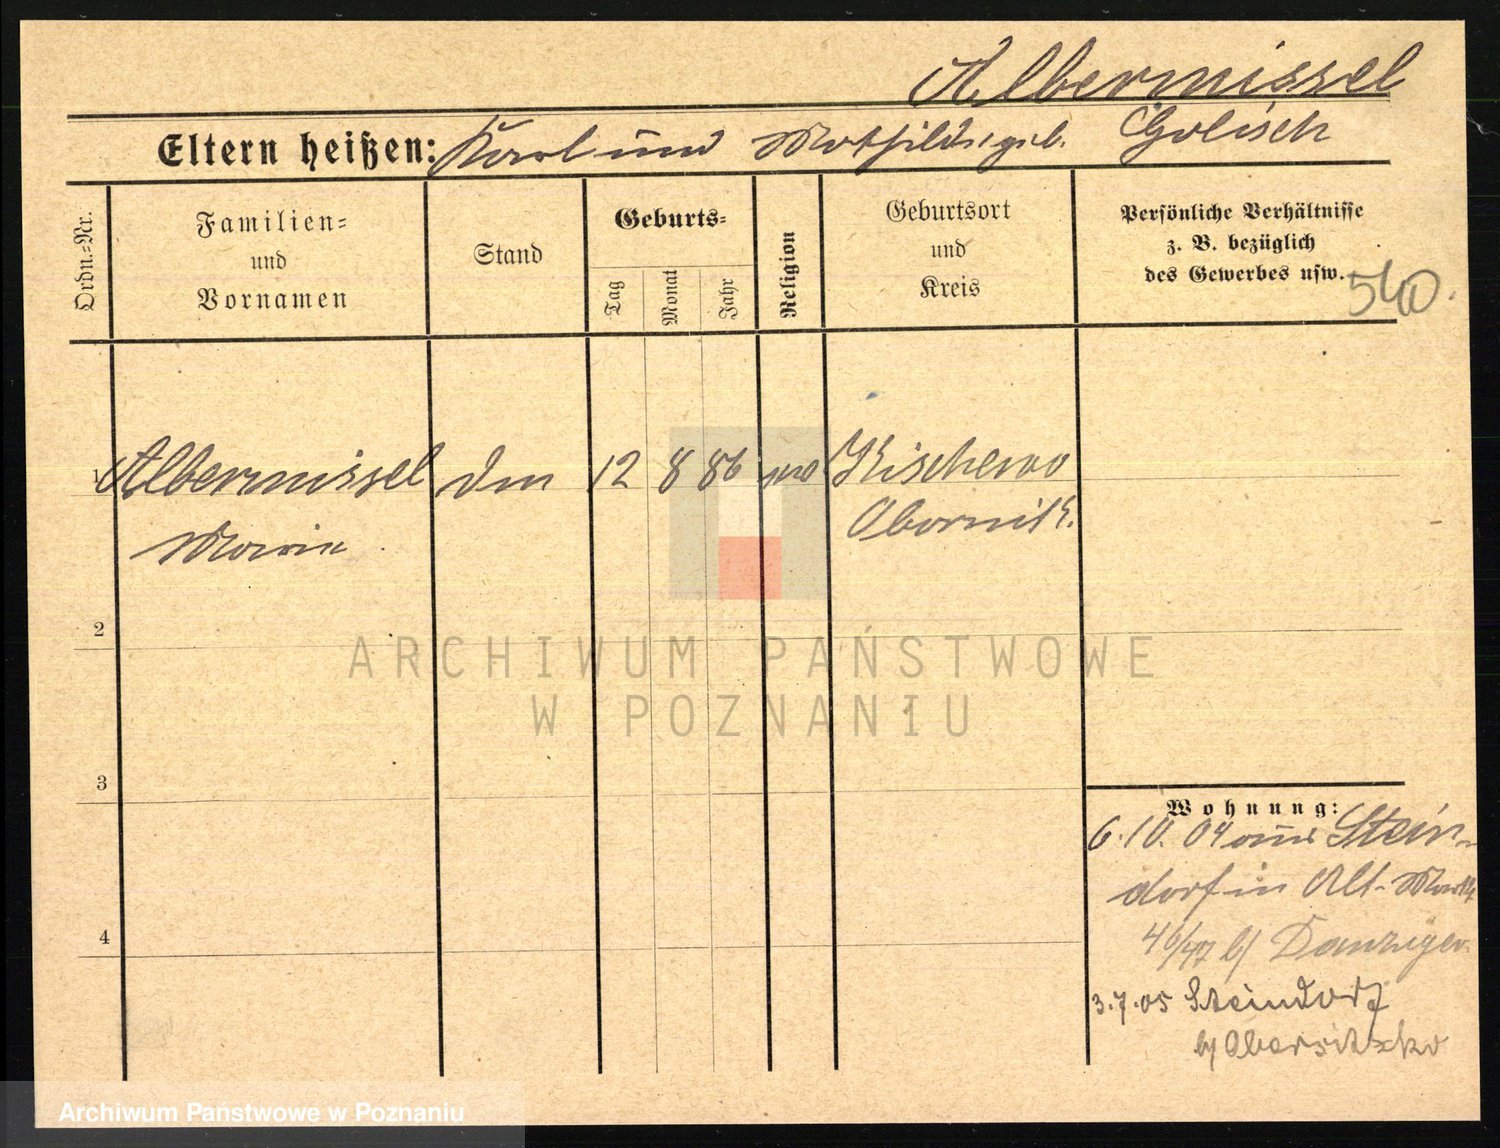 Albermissel
Eltern heißen: Karl und Mathilde geb. Golisch
Ordn.=Nr.
Familien=
und
Vornamen
Stand
Geburts=
Tag
Monat
Jahr
Religion
Geburtsort
und
Kreis
Persönliche Verhältnisse
z. B. bezüglich
des Gewerbes usw.
540.
1 Albermissel 12 8 86 Kischewo
Marie Obornik.
2
3
4
Wohnung:
6.10.04 aus Stein-
dorf in Alt-Markt
46/47 b/ Danziger
3.7.05 Steindorf
b/ Obersitzko
ARCHIWUM PAŃSTWOWE
W POZNANIU
Archiwum Państwowe w Poznaniu